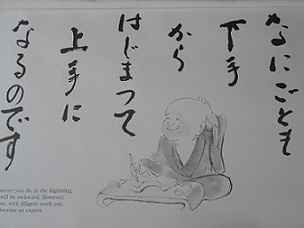 なにごとも
下手
から
はじまって
上手に
なるのです
never you do, at the beginning,
will be awkward. However,
with diligent work you
become an expert.